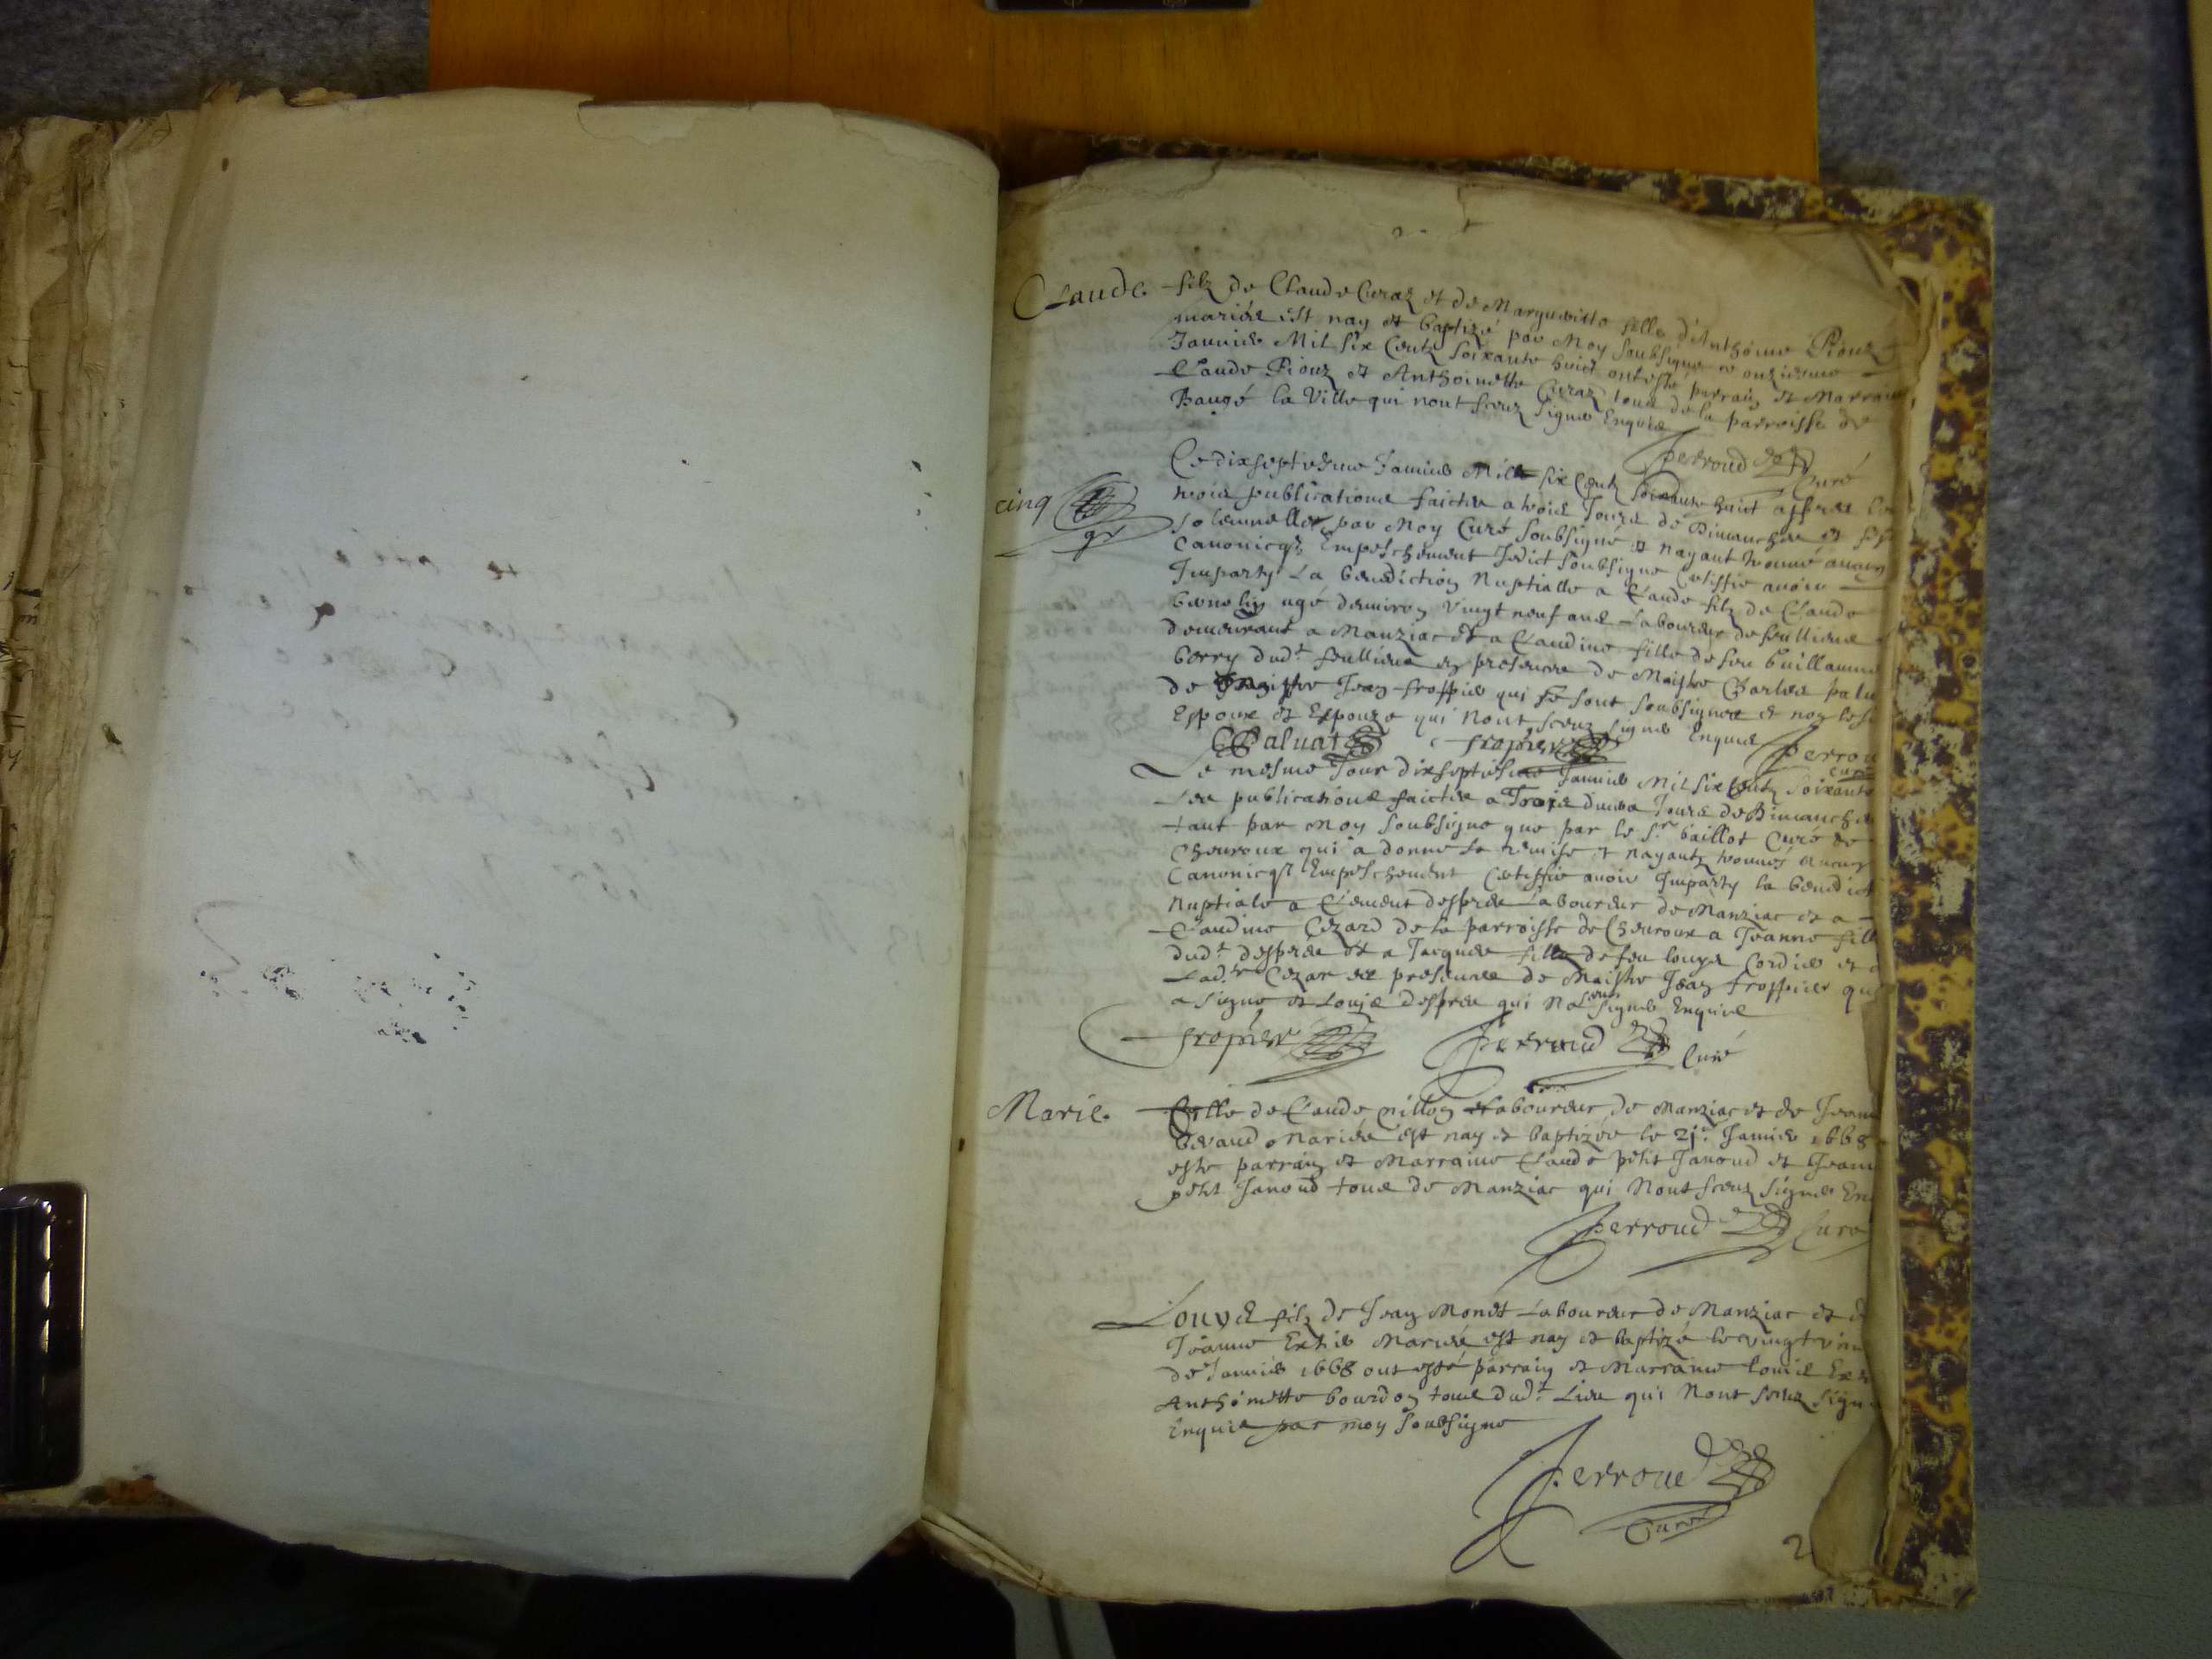 Claude. filz de Claude Curaz et de Margueritte fille d'Anthoine Pioux
mariés est nay et baptizé par Moy soubsigné ce onziesme
Januier Mil six Centz soixante huict ont esté parrain et Marraine
Claude Pioux et Anthoinette Curaz tous de la parroisse de
Baugé la Ville qui nont sceuz signer Enquis
Perroud Curé
cinq
gr
Ce dixseptiesme Januier Mil six Centz soixante huict appres les
trois publications faictes a trois Jours de Dimanches et
solemnelles par Moy Curé soubsigné et nayant trouué aucung
Canonicqz Empeschement Jedict soubsigne Certiffie auoir
Imparty La benediction Nuptialle a Claude filz de Claude
agé denuiron Vingt neuf ans Laboureur de feulliens
demeurant a Manziac et a Claudine fille de feu Guillaume
Gorry dudt feulliens en presence de Maistre Charles palu
de Maistre Jean froppier qui se sont soubsignes et non les
Espoux et Espouze qui Nont sceuz signer Enquis
CPaluat fropier Perrou
Le mesme Jour dixseptiesme Januier Mil six Centz soixante
Les publications faictes a Trois diuers Jours de Dimanche
tant par Moy soubsigne que par le Sr baillot Curé de
Cheuroux qui a donne la remise et nayantz trouués aucung
Canonicqz Empeschement Certiffie auoir Imparty la benedict
Nuptiale a Clement despres Laboureur de Manziac et a
Claudine Cezard de la parroisse de Cheuroux a Jeanne fill
dudt despres et a Jacques filz de feu louys Cordier et
Ladte Cezar es presences de Maistre Jean froppier qui
a signe et Louis despres qui Na sceu signer Enquis
fropier Perroud Curé
Marie. Fille de Claude millon Laboureur de Manziac et de Jeanne
Geraud Mariés est nay et baptizée le 21e Januier 1668
esté parrain et Marraine Claude petit Janoud et Jeann
petit Janoud tous de Manziac qui Nont sceuz signer En
Perroud Curé
Louys filz de Jean Monet Laboureur de Manziac et d
Jeanne Extier Mariés est nay et baptizé le vingt
de Januier 1668 ont esté parrain et Marraine louis Ex
Anthoinette bourdon tous dudt Lieu qui Nont sceuz sign
Enquis par moy soubsigne
Perroud
Curé
2